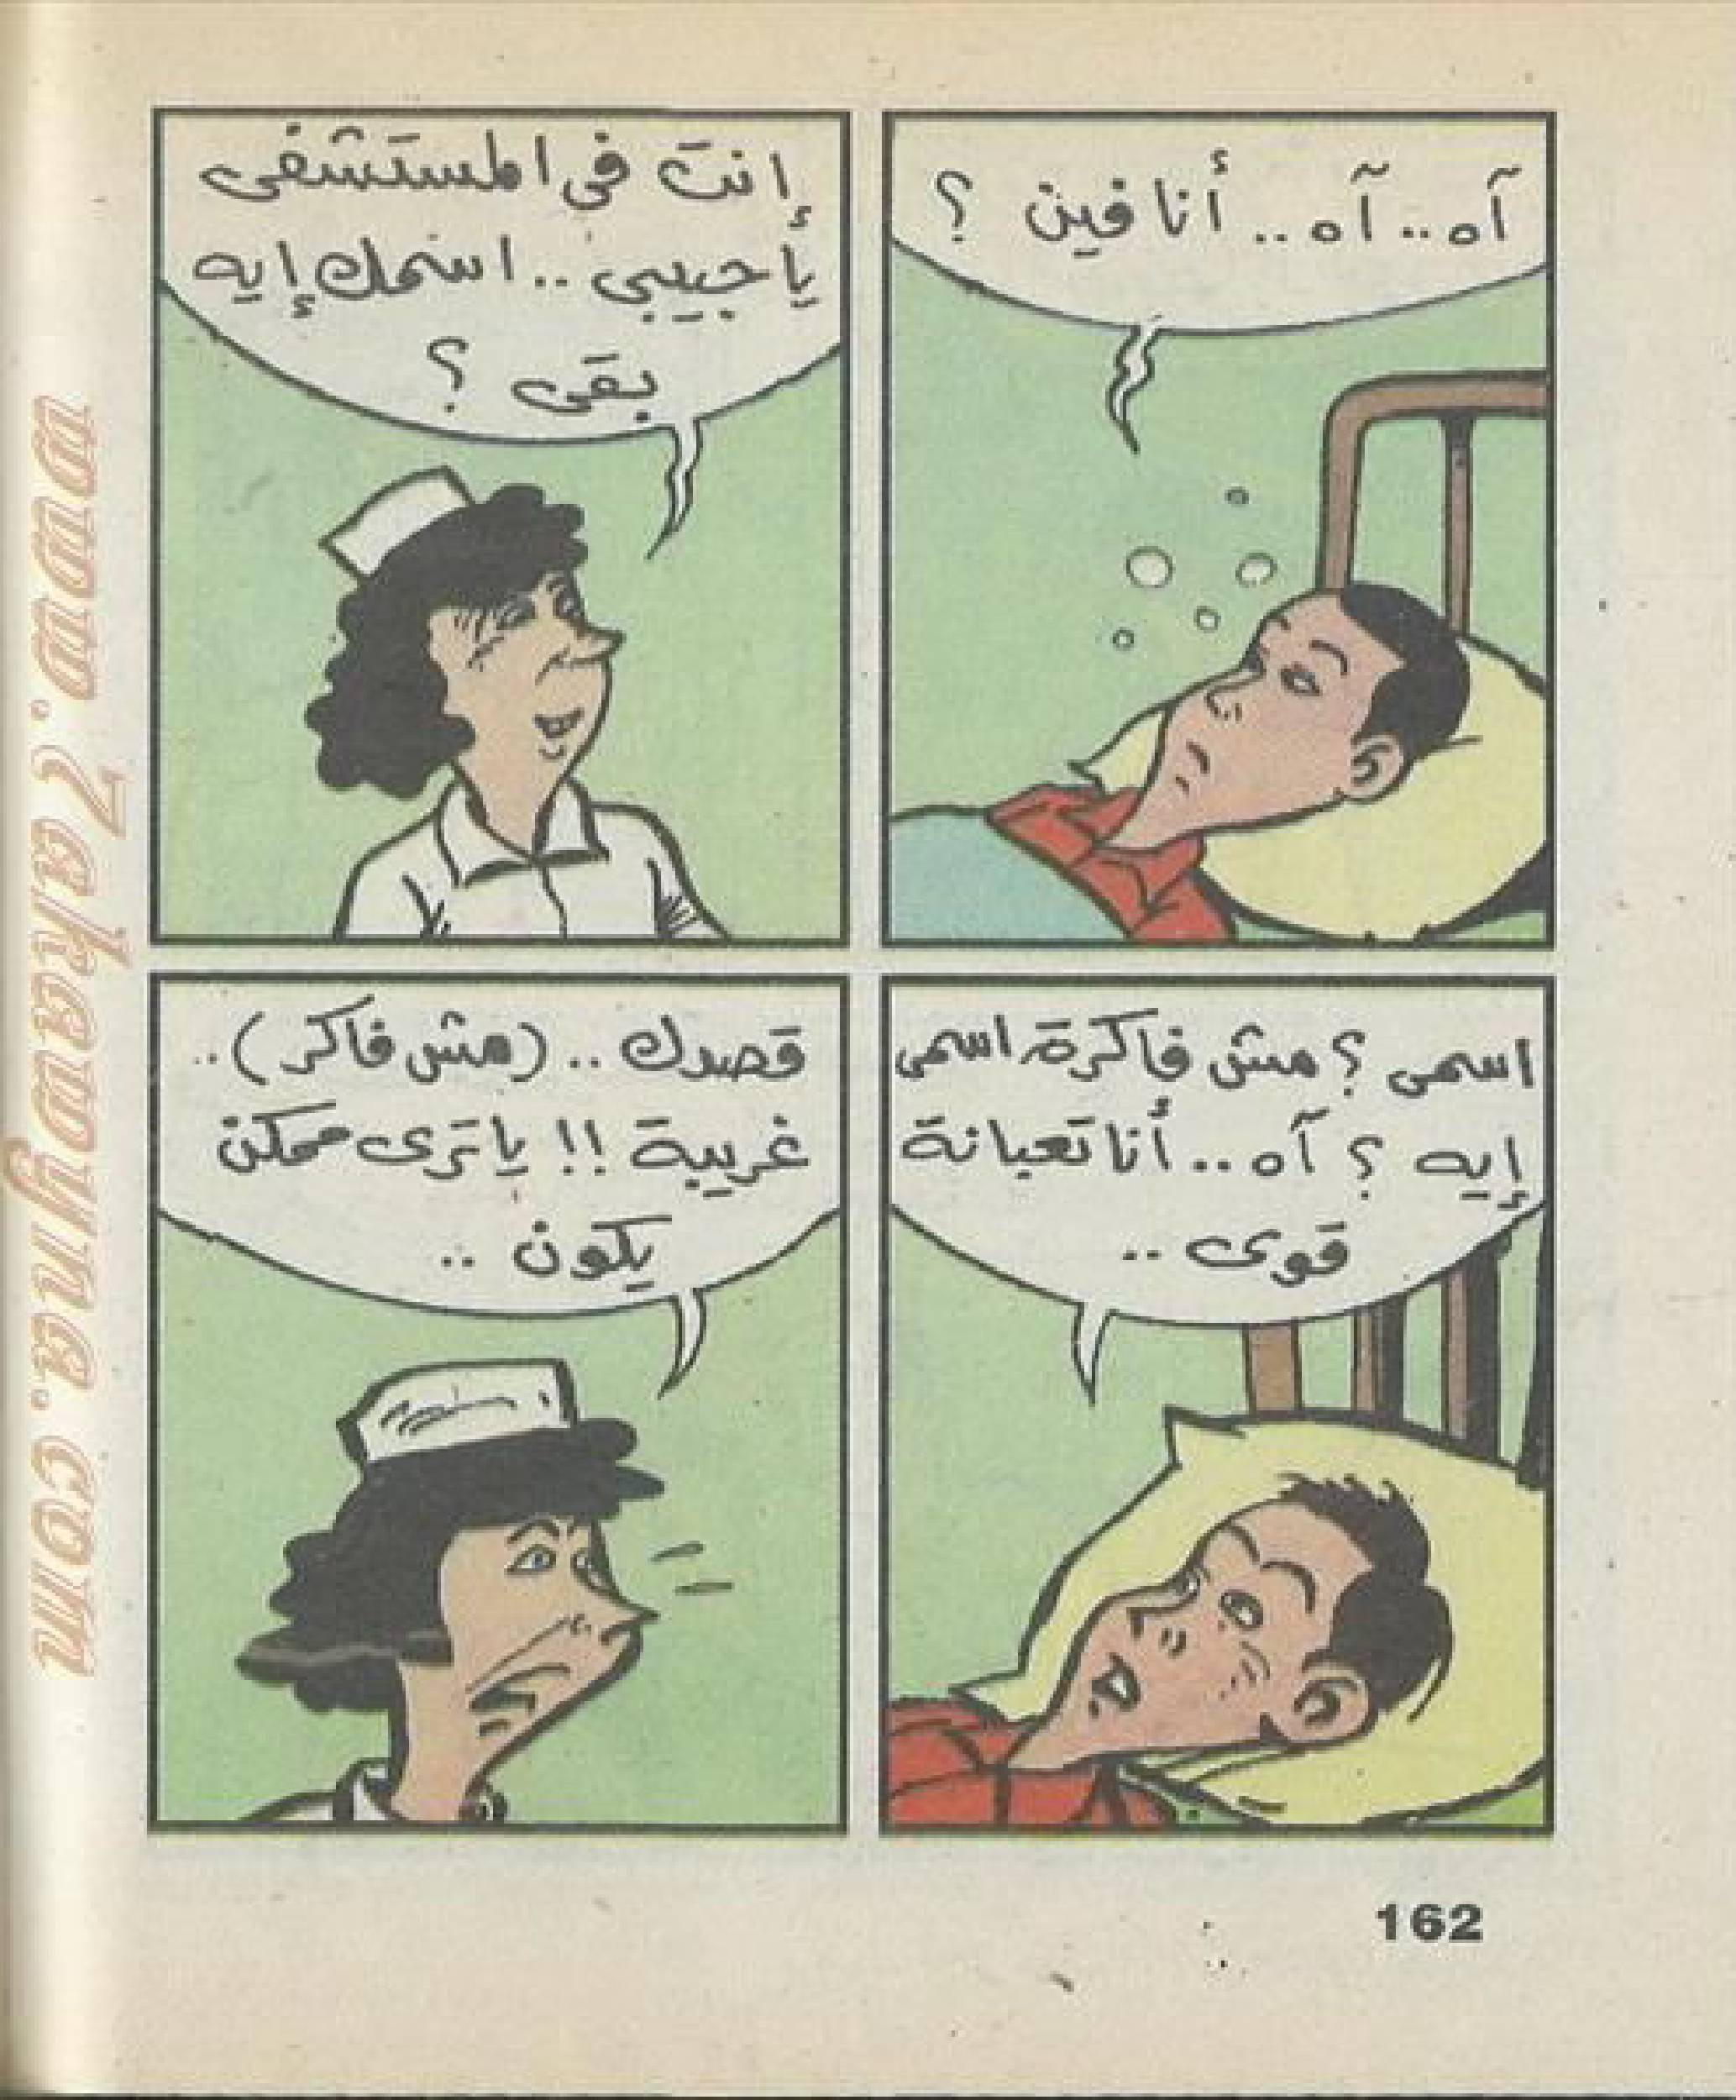 آه.. آه.. أنا فين ؟
إنت فى المستشفى
يا حبيبى.. اسمك إيه
بقى ؟
اسمى ؟ مش فاكرة اسمى
إيه ؟ آه.. أنا تعبانة
قوى ..
قصدك .. (مش فاكر) ..
غريبة !! يا ترى ممكن
يكون ..
162
www.7akawyna.com